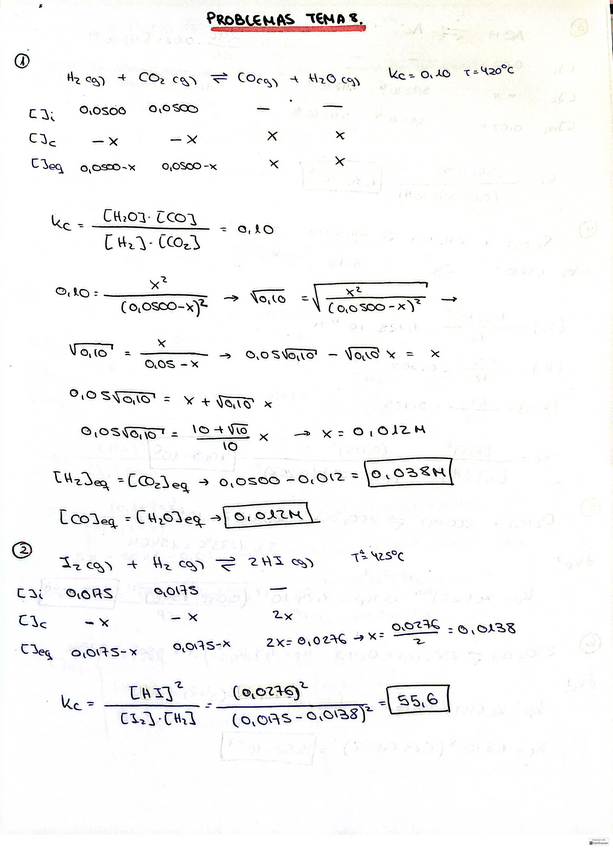 PROBLEMAS TEMA 8.
①
H₂(g) + CO₂(g) ⇌ CO(g) + H₂O(g) Kc = 0,10 T = 420°C
[ ]i 0,0500 0,0500 — —
[ ]c -x -x x x
[ ]eq 0,0500-x 0,0500-x x x
Kc = [H₂O]·[CO] / [H₂]·[CO₂] = 0,10
0,10 = x² / (0,0500-x)² → √0,10 = √(x² / (0,0500-x)²) →
√0,10 = x / 0,05-x → 0,05√0,10 - √0,10 x = x
0,05√0,10 = x + √0,10 x
0,05√0,10 = 10+√10 / 10 x → x = 0,012M
[H₂]eq = [CO₂]eq → 0,0500 - 0,012 = 0,038M
[CO]eq = [H₂O]eq → 0,012M
②
I₂(g) + H₂(g) ⇌ 2HI(g) Tª = 425°C
[ ]i 0,0175 0,0175 —
[ ]c -x -x 2x
[ ]eq 0,0175-x 0,0175-x 2x = 0,0276 → x = 0,0276 / 2 = 0,0138
Kc = [HI]² / [I₂]·[H₂] = (0,0276)² / (0,0175-0,0138)² = 55,6